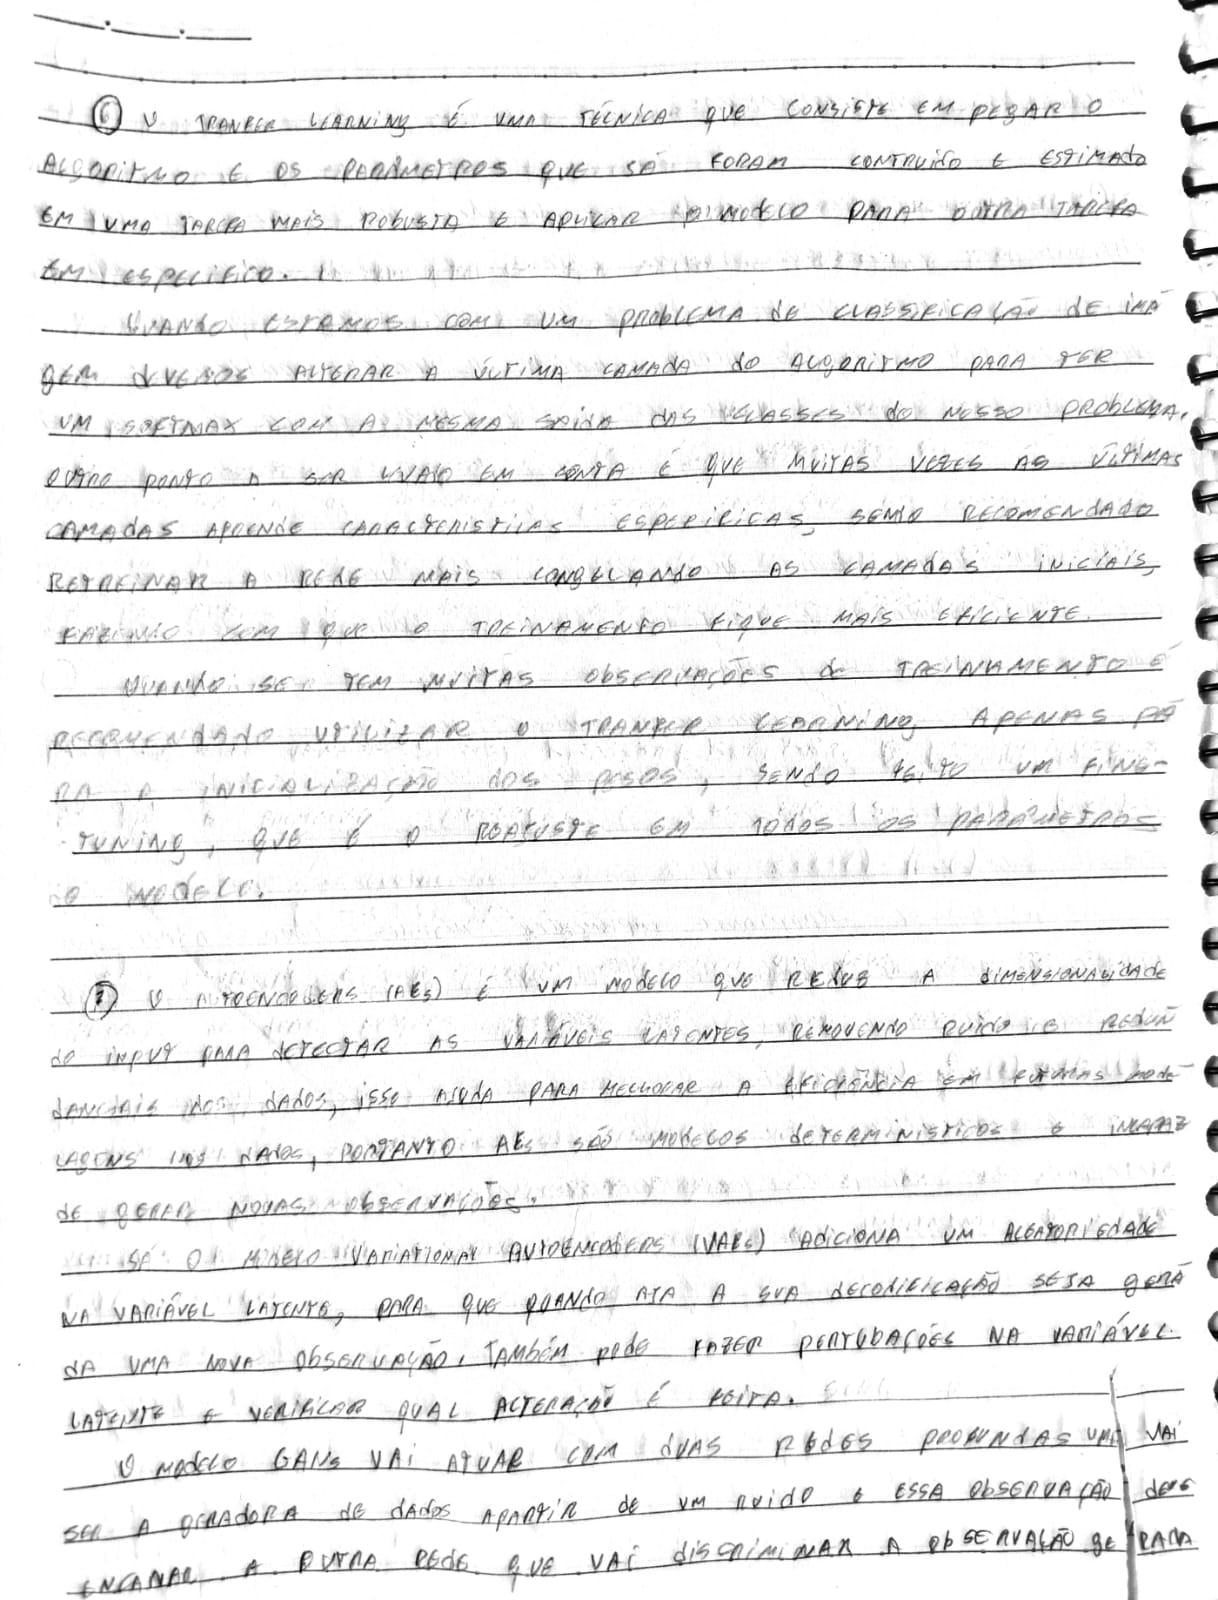 ⑥ O TRANFER LEARNING É UMA TÉCNICA QUE CONSISTE EM PEGAR O
ALGORITMO E OS PARÂMETROS QUE JÁ FORAM CONTRUIDO E ESTIMADO
EM UMA TAREFA MAIS ROBUSTA E APLICAR O MODELO PARA OUTRA TAREFA
EM ESPECIFICO.
QUANDO ESTAMOS COM UM PROBLEMA DE CLASSIFICAÇÃO DE IMA
GEM DEVEMOS ALTERAR A ÚLTIMA CAMADA DO ALGORITMO PARA TER
UM SOFTMAX COM A MESMA SAIDA DAS CLASSES DO NOSSO PROBLEMA.
OUTRO PONTO A SER LEVADO EM CONTA É QUE MUITAS VEZES AS ÚLTIMAS
CAMADAS APRENDE CARACTERISTICAS ESPEFIFICAS, SENDO RECOMENDADO
RETREINAR A REDE MAIS CONGELANDO AS CAMADAS INICIAIS,
FAZENDO COM QUE O TREINAMENTO FIQUE MAIS EFICIENTE.
QUANDO SE TEM MUITAS OBSERVAÇÕES DE TREINAMENTO É
RECOMENDADO UTILIZAR O TRANFER LEARNING APENAS PA
RA A INICIALIZAÇÃO DOS PESOS, SENDO FEITO UM FINE-
TUNING, QUE É O REAJUSTE EM TODOS OS PARÂMETROS
DO MODELO.
⑦ O AUTOENCODERS (AEs) É UM MODELO QUE REDUZ A DIMENSIONALIDADE
DO INPUT PARA DETECTAR AS VARIÁVEIS LATENTES, REMOVENDO RUIDO E REDUN
DANCIAIS DOS DADOS, ISSO AJUDA PARA MELHORAR A EFICIÊNCIA EM FUTURAS MODE
LAGENS DOS DADOS, PORTANTO AEs SÃO MODELOS DETERMINISTICOS E INCAPAZ
DE GERAR NOVAS OBSERVAÇÕES.
JÁ O MODELO VARIATIONAL AUTOENCODERS (VAEs) ADICIONA UM ALEATORIEDADE
NA VARIÁVEL LATENTE, PARA QUE QUANDO AJA A SUA DECODIFICAÇÃO SEJA GERA
DA UMA NOVA OBSERVAÇÃO. TAMBÉM PODE FAZER PERTUBAÇÕES NA VARIÁVEL
LATENTE E VERIFICAR QUAL ALTERAÇÃO É FEITA.
O MODELO GANs VAI ATUAR COM DUAS REDES PROFUNDAS UMA VAI
SER A GERADORA DE DADOS APARTIR DE UM RUIDO E ESSA OBSERVAÇÃO DEVE
ENGANAR A OUTRA REDE QUE VAI DISCRIMINAR A OBSERVAÇÃO GE RADA